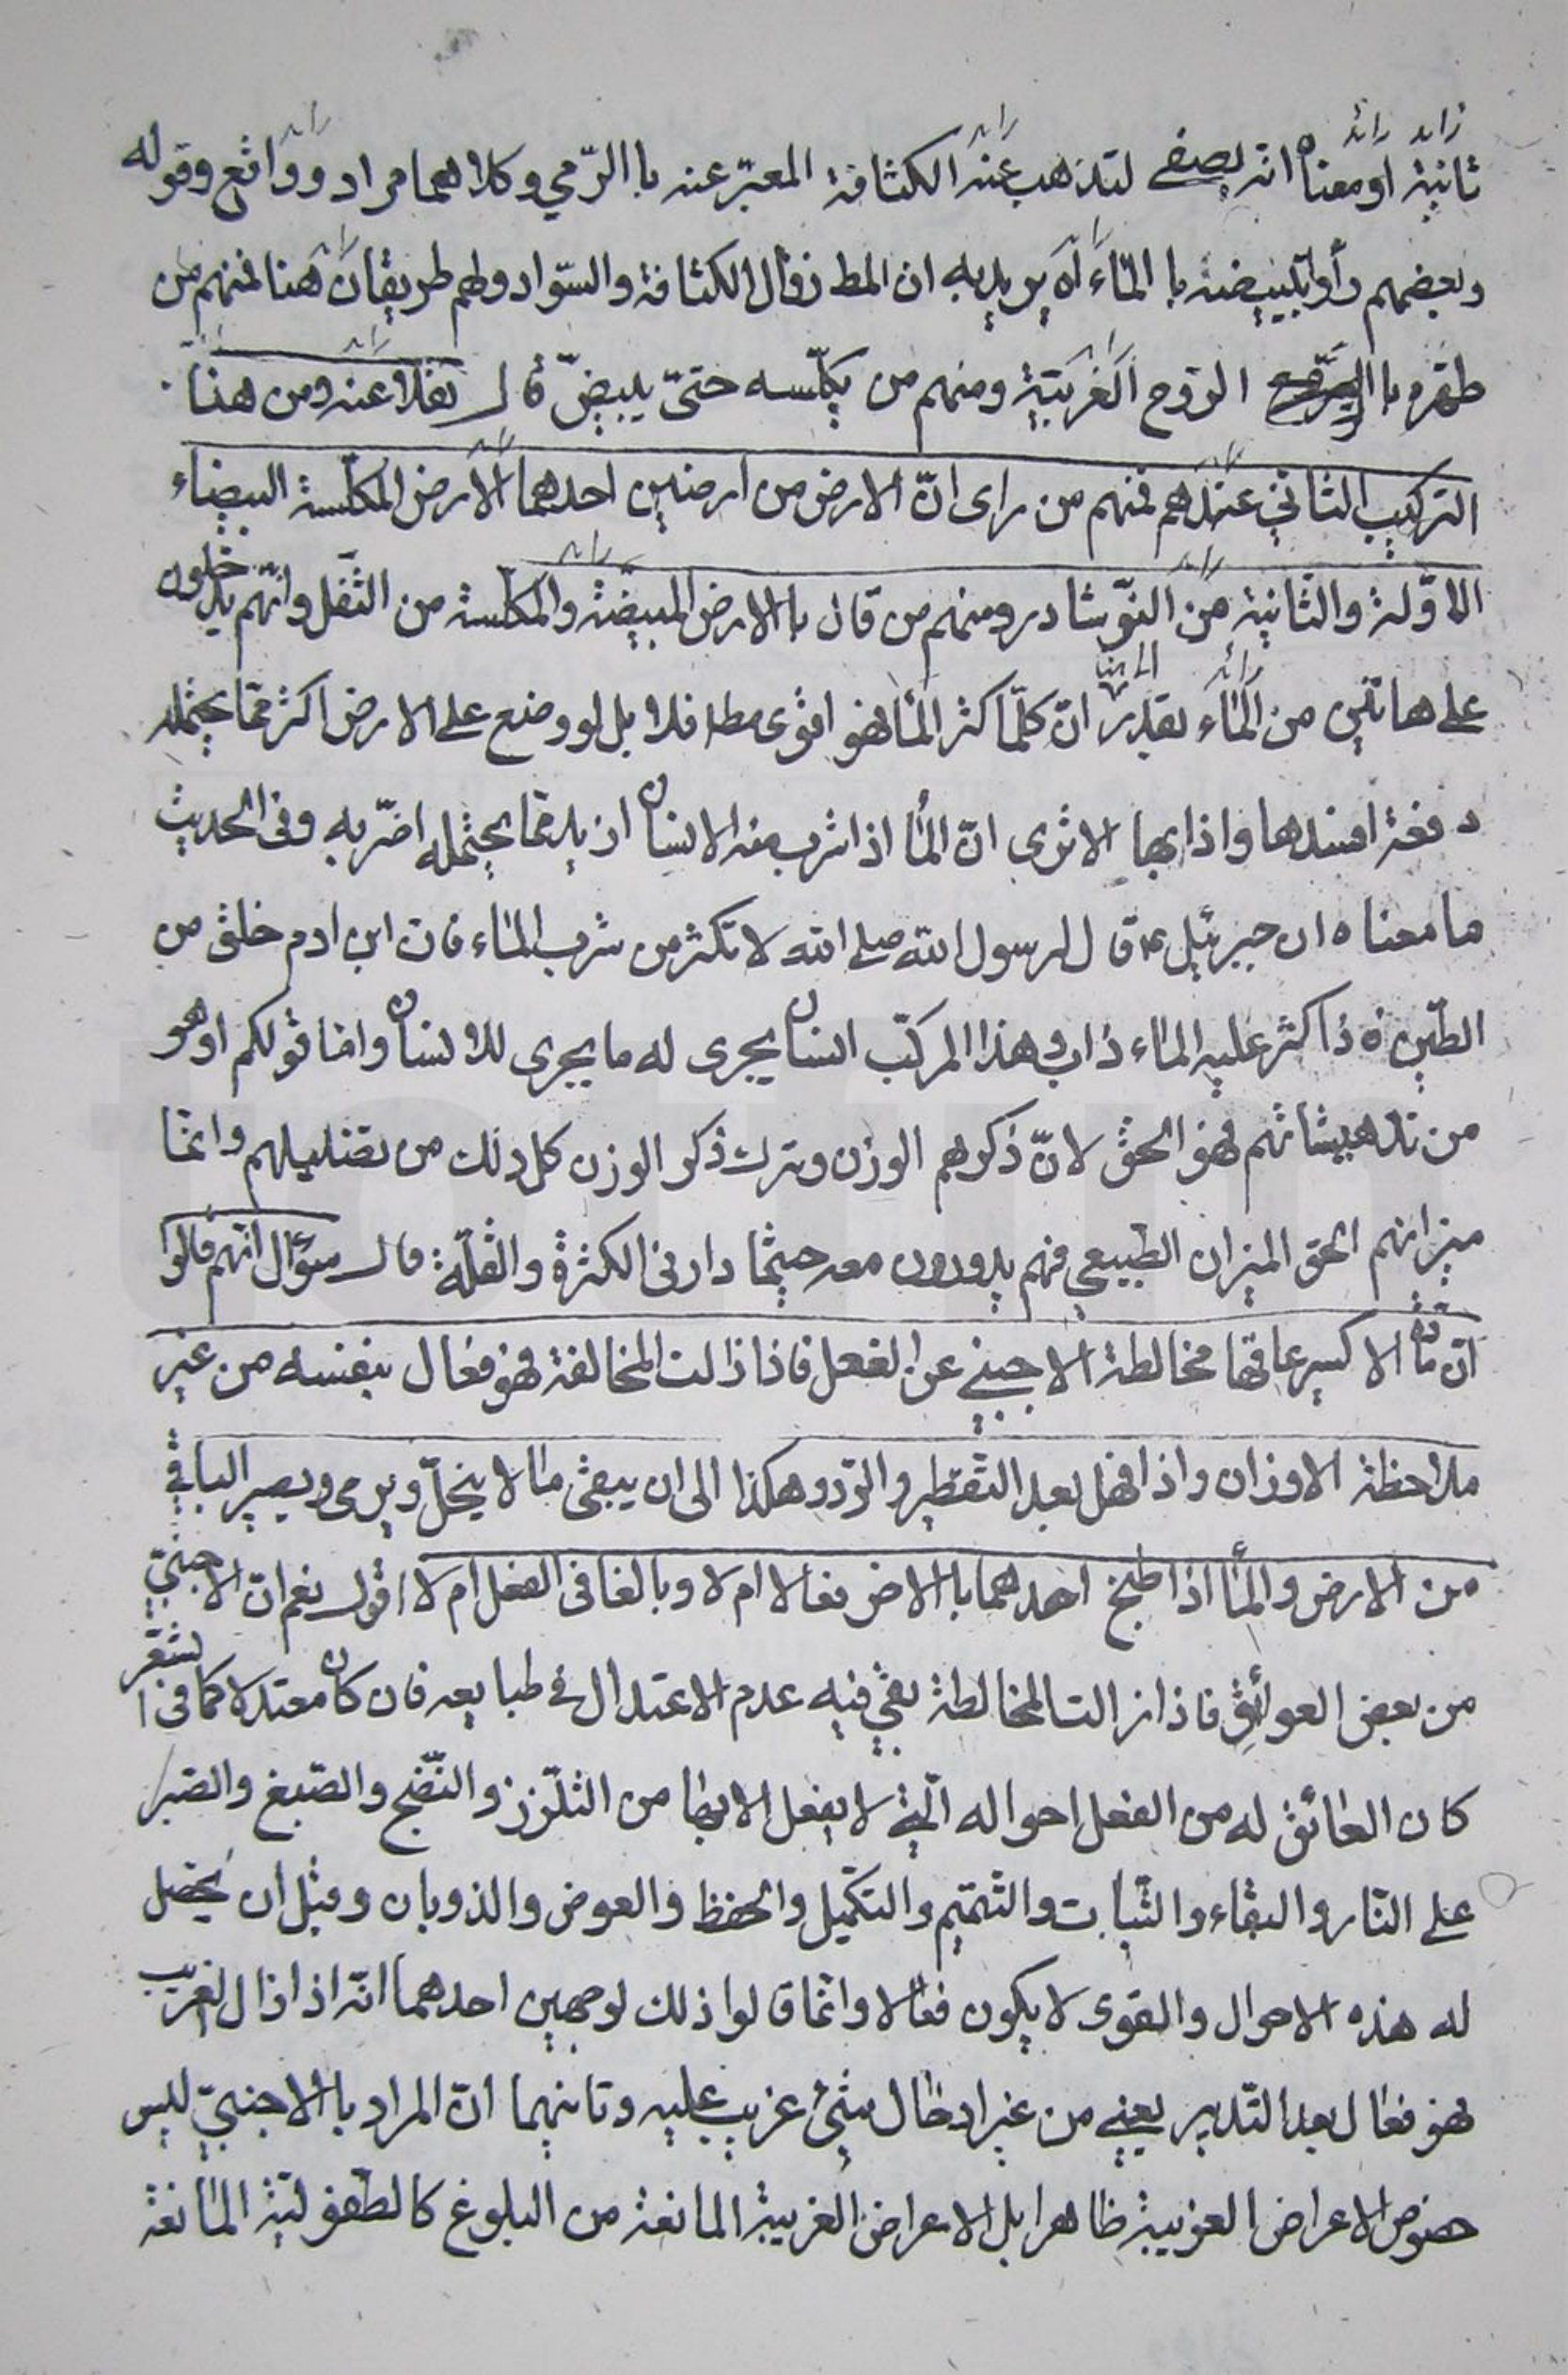 ثانية او معناه انه يصفى لتذهب عنه الكثافة المعبّر عنه باالرّمي وكلاهما مراد وواقع وقوله
وبعضهم رأوا تبييضه با المآء اه يريد به ان المط زوال الكثافة والسّواد ولهم طريقان هنا فمنهم من
طهّره باا الرّوح الغريبّة ومنهم من يكلّسه حتىّ يبيضّ قال نقلا عنه ومن هنا
التركيب الثاني عندهم فمنهم من راى انّ الارض من ارضين احدهما الأرض المكلّسة البيضاء
الااوّلة والثانية من النوّشادر ومنهم من قال باالارض المبيضّة والمكلّسة من الثّفل وانّهم يدخلون
على هاتين من المآء بقدر انّ كلّما كثر المأ فهو اقوى مطلا فلا بل لو وضع على الارض اكثر ممّا يحتمله
دفعة افسدها واذابها الا ترى انّ المأ اذا شرب منه الانسان ازيد ممّا يحتمله اضّر به وفى الحديث
ما معناه ان جبرئيل ع قال لرسول الله صلى الله لا تكثر من شرب المآء فان ابن ادم خلق من
الطّين فاذا كثر عليه المآء ذاب وهذا المركّب انسان يجرى له ما يجرى للانسان وامّا قولكم او هو
من تدهيشاتهم فهو الحقّ لانّ ذكرهم الوزن وترك ذكر الوزن كل ذلك من تضليلهم وانّما
ميزانهم الحق الميزان الطبيعي فهم يدورون معه حيثما دار فى الكثرة والقلّة قال سؤال انّهم قالوا
انّ مادّة الاكسير عاقها مخالطة الاجنبي عن الفعل فاذا زالت المخالفة فهو فعال بنفسه من غير
ملاحظة الاوزان واذا فهل بعد التقطير والرّد وهكذا الى ان يبقى ما لا ينحلّ ويرمى ويصير الباقي
من الارض والمأ اذا طبخ احدهما باالاخر فعالا ام لا وبالغا فى الفعل ام لا اقول نعم انّ الاجنبيّ
من بعض العوائق فاذا زالت المخالطة بقي فيه عدم الاعتدال في طبايعه فان كان معتدلا كما فى الشعّر
كان العائق له من الفعل احواله الّتي لا يفعل الا بها من التلّزز والنّضج والصّبغ والصّبر
على النّار والبقآء والثّبات والتّتميم والتكميل والحفظ والغوص والذوبان وقبل أن يحصل
له هذه الاحوال والقوى لا يكون فعّالا وانّما قالوا ذلك لوجهين احدهما انّه اذا زال الغريب
فهو فعّال بعد التّدبير يعني من غير ادخال شئ غريب عليه وثانيهما انّ المراد باالاجنبيّ ليس
خصوص الاعراض الغريبة ظاهرا بل الاعراض الغريبة المانعة من البلوغ كالطّفوليّة المانعة